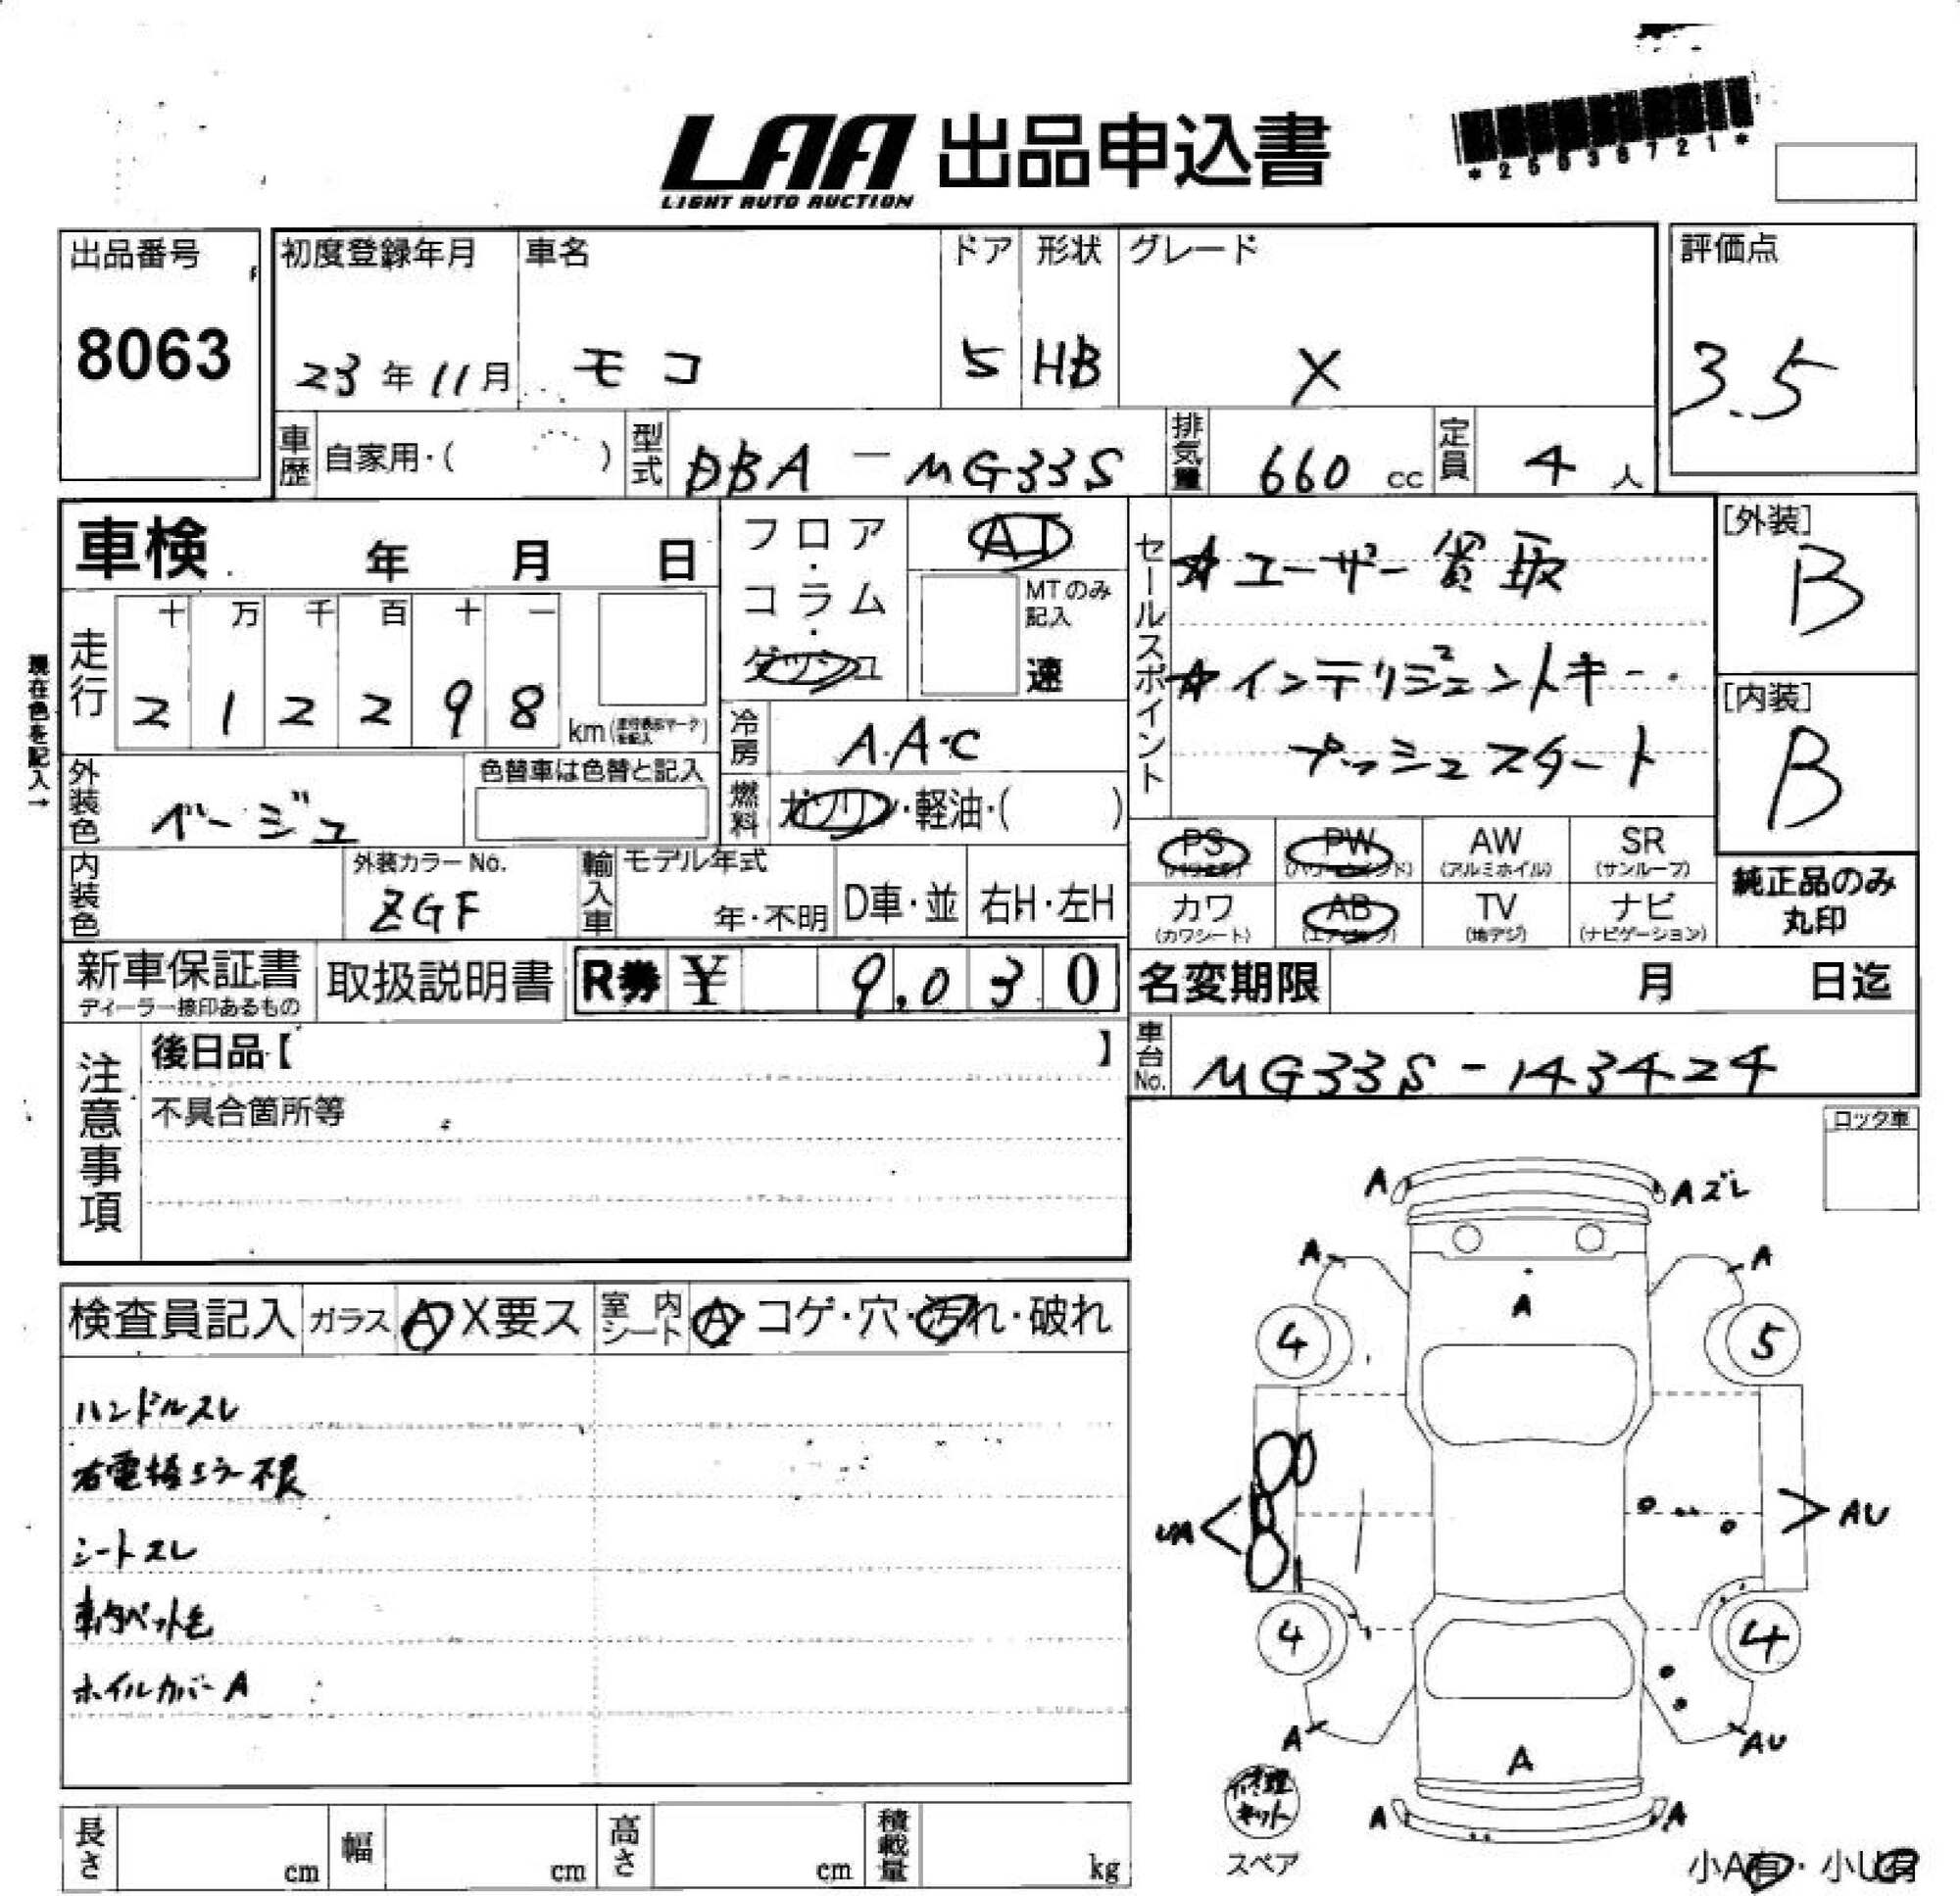 LAA 出品申込書
LIGHT AUTO AUCTION
*25036721*
出品番号
8063
初度登録年月
23年11月
車名
モコ
ドア
5
形状
HB
グレード
X
評価点
3.5
車歴 自家用・( )
型式 DBA-MG33S
排気量 660 cc
定員 4 人
車検 年 月 日
走行
十 万 千 百 十 一
2 1 2 2 9 8 km
現在色を記入→
フロア・コラム・ダッシュ
AT
MTのみ記入
速
冷房 A.A.C
燃料 ガソリン・軽油・( )
セールスポイント
☆ユーザー買取
☆インテリジェントキー・
プッシュスタート
[外装]
B
[内装]
B
外装色 ベージュ
色替車は色替と記入
内装色
外装カラーNo.
ZGF
輸入車
モデル年式
年・不明
D車・並
右H・左H
PS (パワステ)
PW (パワーウインド)
AW (アルミホイル)
SR (サンルーフ)
カワ (カワシート)
AB (エアバッグ)
TV (地デジ)
ナビ (ナビゲーション)
純正品のみ
丸印
新車保証書
ディーラー捺印あるもの
取扱説明書
R券 ¥ 9,030
名変期限 月 日迄
車台No. MG33S-143424
注意事項
後日品【 】
不具合箇所等
ロック車
検査員記入
ガラス A X要ス
室内シート A・コゲ・穴・汚れ・破れ
ハンドルスレ
右電格ミラー不良
シートスレ
車内ペット毛
ホイルカバーA
A
Aズレ
A
A
A
4
5
UA
AU
4
4
A
AU
A
A
A
修理キット
スペア
小A有・小U有
長さ cm
幅 cm
高さ cm
積載量 kg